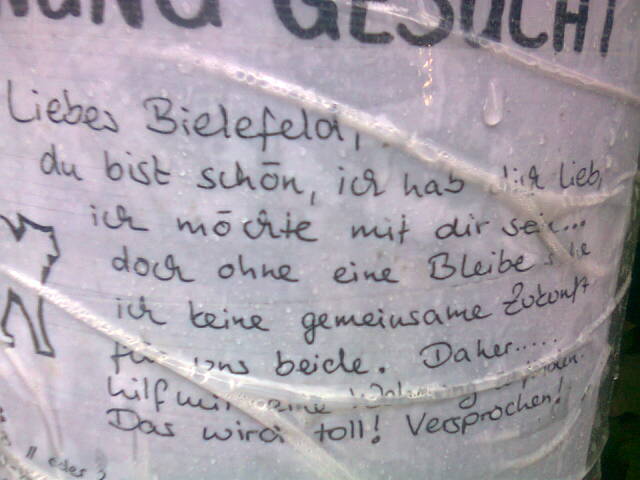 GESUCHT
Liebes Bielefeld,
du bist schön, ich hab dich lieb,
ich möchte mit dir sein...
doch ohne eine Bleibe sehe
ich keine gemeinsame Zukunft
für uns beide. Daher.....
hilf mir eine Wohnung
Das wird toll! Versprochen!